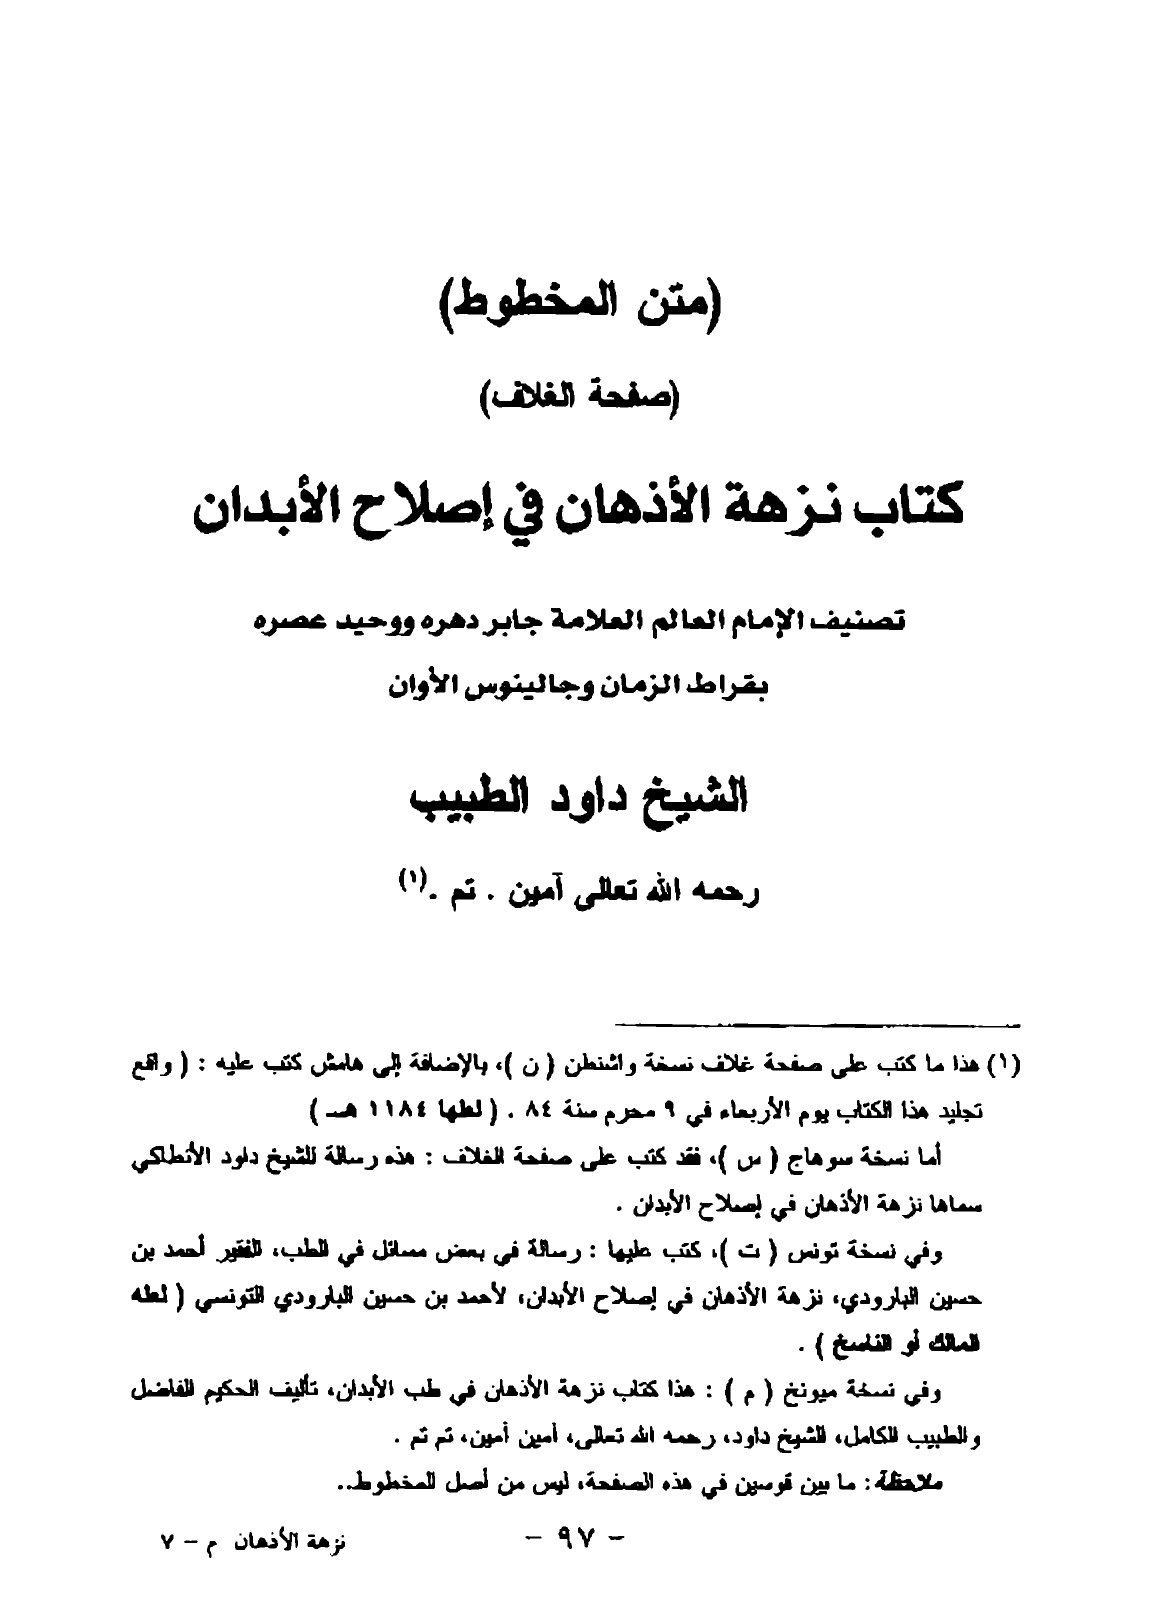 (متن المخطوط)
(صفحة الغلاف)
كتاب نزهة الأذهان في إصلاح الأبدان
تصنيف الإمام العالم العلامة جابر دهره ووحيد عصره
بقراط الزمان وجالينوس الأوان
الشيخ داود الطبيب
رحمه الله تعالى آمين . تم .(١)
(١) هذا ما كتب على صفحة غلاف نسخة واشنطن ( ن )، بالإضافة إلى هامش كتب عليه : ( واقع
تجليد هذا الكتاب يوم الأربعاء في ٩ محرم سنة ٨٤ . ( لعلها ١١٨٤ هـ )
أما نسخة سوهاج ( س )، فقد كتب على صفحة الغلاف : هذه رسالة للشيخ داود الأنطاكي
سماها نزهة الأذهان في إصلاح الأبدان .
وفي نسخة تونس ( ت )، كتب عليها : رسالة في بعض مسائل في الطب، للفقير أحمد بن
حسين البارودي، نزهة الأذهان في إصلاح الأبدان، لأحمد بن حسين البارودي التونسي ( لعله
المالك أو الناسخ ) .
وفي نسخة ميونخ ( م ) : هذا كتاب نزهة الأذهان في طب الأبدان، تأليف الحكيم الفاضل
والطبيب الكامل، الشيخ داود، رحمه الله تعالى، أمين أمين، تم تم .
ملاحظة : ما بين قوسين في هذه الصفحة، ليس من أصل المخطوط..
- ٩٧ -
نزهة الأذهان م - ٧